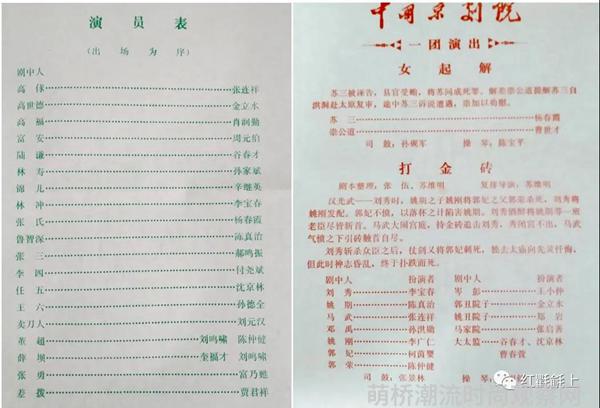 演员表
(出场为序)
剧中人
高俅……张连祥
高世德……金立水
高福……肖润勤
富安……周元伯
陆谦……谷春才
林寿……孙家斌
锦儿……辛继英
林冲……李宝春
张氏……杨春霞
鲁智深……陈真治
张三……郝鸣振
李四……付尧斌
任五……沈京林
王六……孙德全
卖刀人……刘元汉
董超……刘鸣啸 陈仲健
薛坝……奎福才 刘鸣啸
张勇……富乃甦
差拨……贾君祥
中国京剧院
一团演出
女起解
苏三被诬告,县官受贿,将苏问成死罪。解差崇公道提解苏三自
洪洞赴太原复审,途中苏三诉说遭遇,崇加以劝慰。
苏三……杨春霞
崇公道……曹世才
司鼓:孙砚军 操琴:陈宝平
打金砖
剧本整理:张伍、苏维明 复排导演:苏维明
汉光武——刘秀时,姚期之子姚刚将郭妃之父郭荣杀死,刘秀将
姚刚发配。郭妃不愤,以落杯之计陷害姚期。刘秀酒醉将姚期等一班
老臣尽皆斩首。马武大闹宫庭,持金砖追击刘秀,秀闭宫不出,马武
气愤之下引砖触首自尽。
刘秀斩杀众臣之后,仗剑又将郭妃刺死,独去太庙向先灵忏悔,
但此时神志昏乱,终于扑跌而死。
剧中人 扮演者 剧中人 扮演者
刘秀……李宝春 岑彭……王小仲
姚期……陈真治 郭丑院子……金立水
马武……张连祥 姚丑院子……郑岩
邓禹……孙洪勋 马家院……张启善
姚刚……李广仁 大太监……谷春才、沈京林
郭妃……何茵婴 曹春萱
郭荣……陈仲健
司鼓:张景林 操琴:
红氍毹上
萌桥潮流时尚